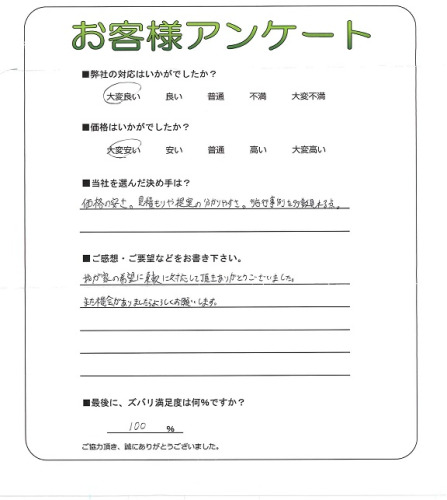 お客様アンケート
■弊社の対応はいかがでしたか？
大変良い 良い 普通 不満 大変不満
■価格はいかがでしたか？
大変安い 安い 普通 高い 大変高い
■当社を選んだ決め手は？
価格の安さ。見積もりや提案の分かりやすさ。
■ご感想・ご要望などをお書き下さい。
我が家の希望に柔軟に対応して頂きありがとうございました。
また機会がありましたらよろしくお願いします。
■最後に、ズバリ満足度は何%ですか？
100 %
ご協力頂き、誠にありがとうございました。